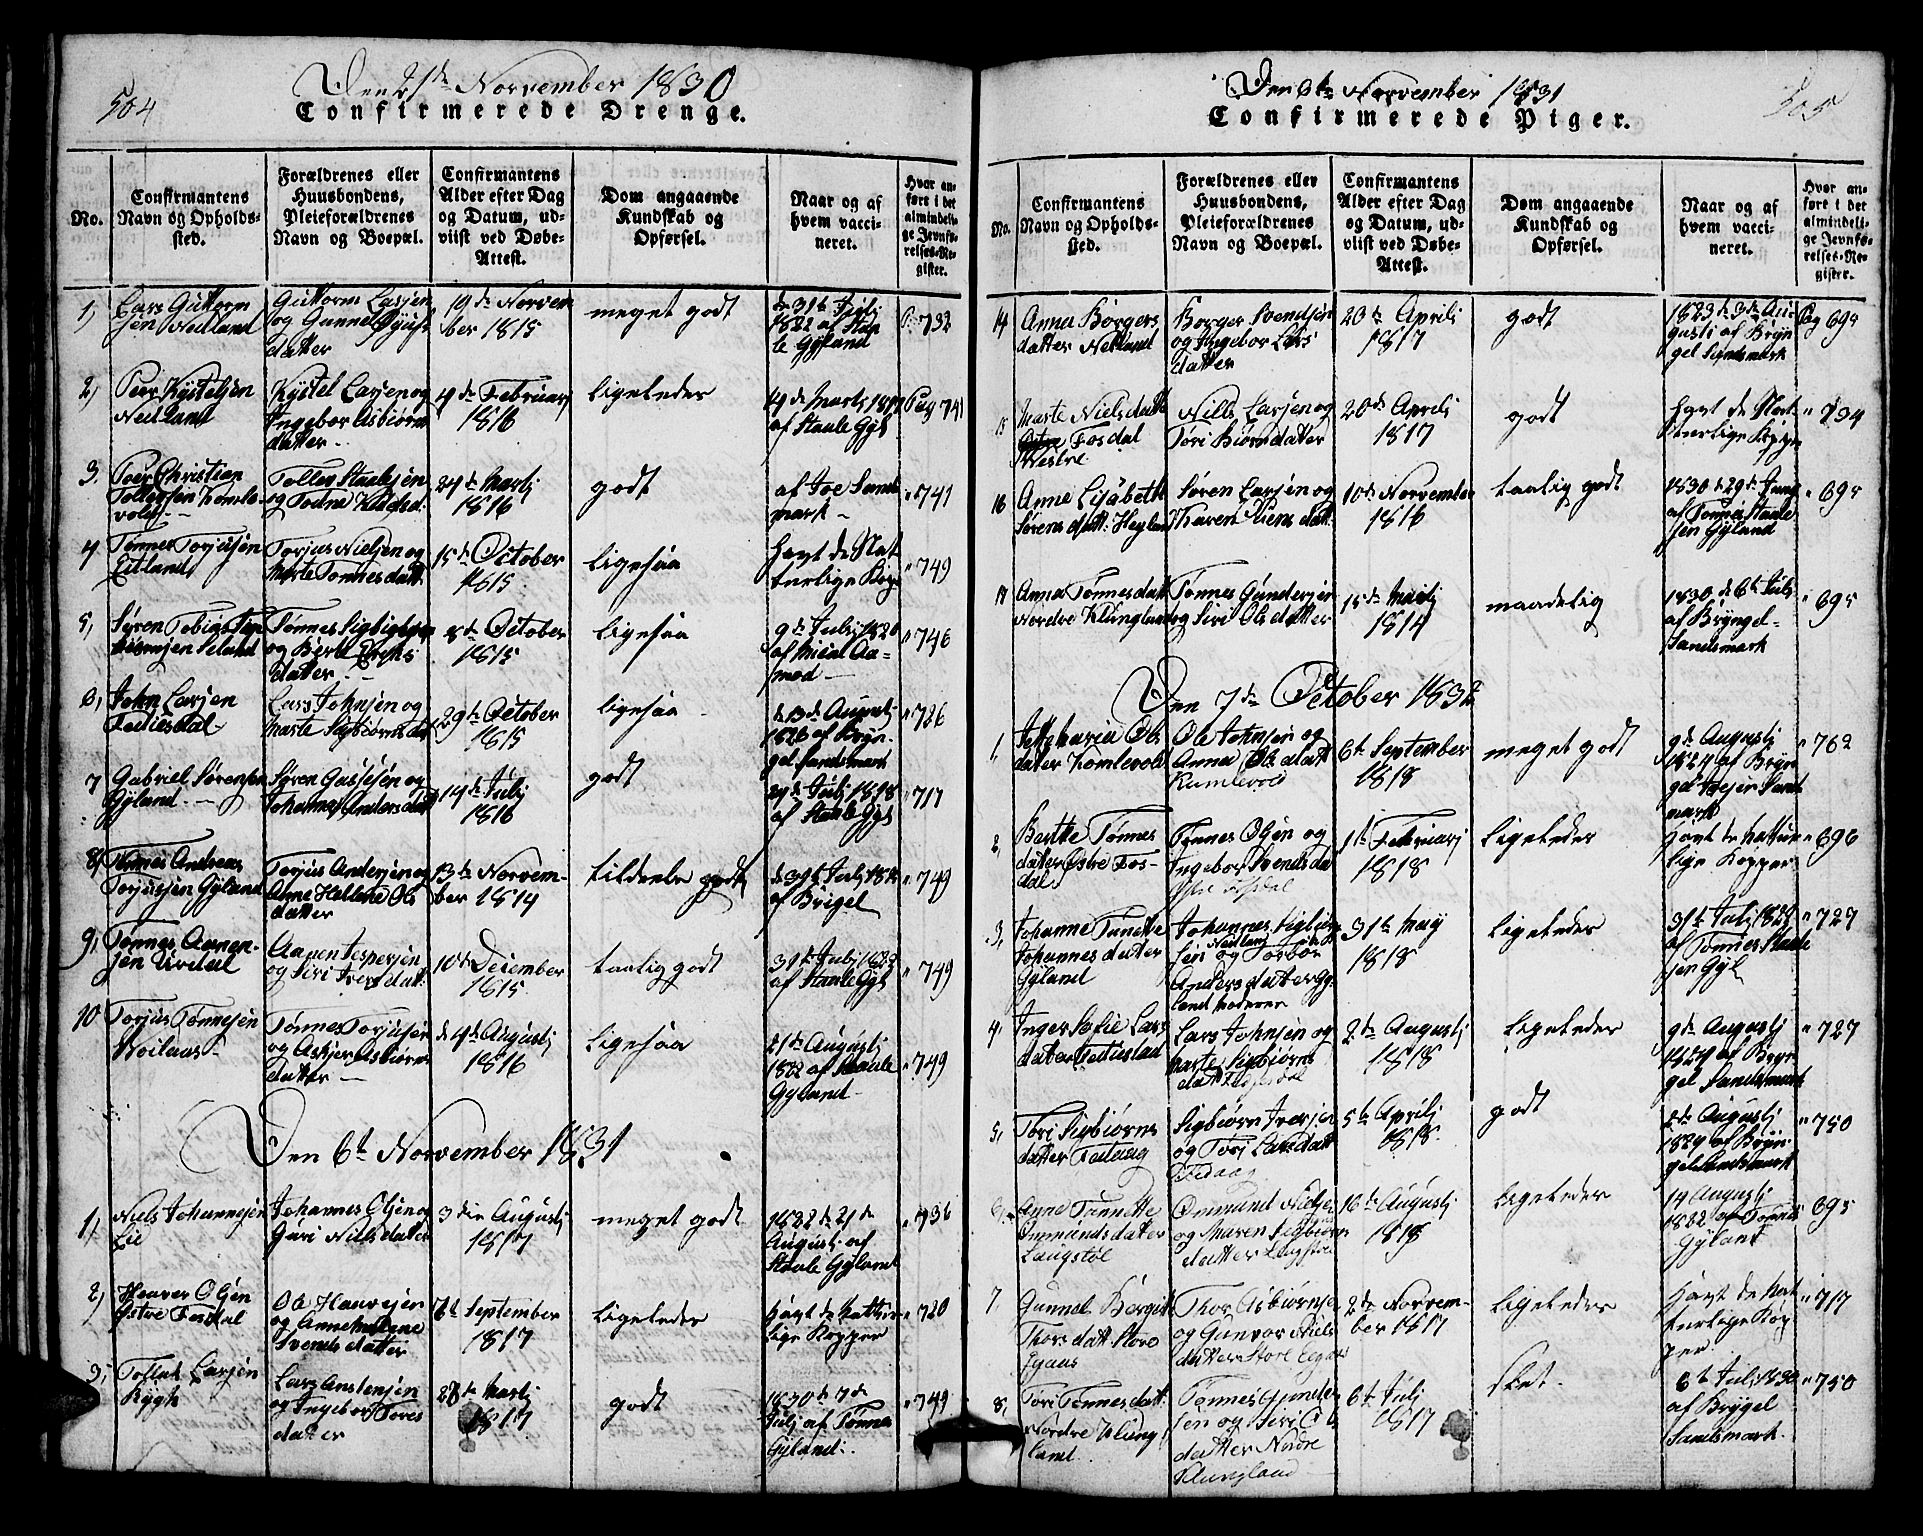 504
Den 21de November 1830
Confirmerede Drenge.
No.
Confirmantens
Navn og Opholds-
sted.
Forældrenes eller
Huusbondens,
Pleieforældrenes
Navn og Boepæl.
Confirmantens
Alder efter Dag
og Datum, ud-
viist ved Døbe-
Attest.
Dom angaaende
Kundskab og
Opførsel.
Naar og af
hvem vacci-
neret.
Hvor an-
føre i det
almindeli-
ge Jevnfø-
relses-Re-
gister.
1, Lars Guttorm
sen Nedland
Guttorm Larsen
og Gunnel
datter
19de Novem
ber 1815
meget godt
1822 af Staa
le Gyland
P. 732
2, Peer Kystelsen
Nedland
Kystel Larsen og
Ingebor Asbiørns
datter
4de Februarj
1816
ligeleder
af Staale Gyl
Pag 741
3. Peer Christian
Tollefsen Komle-
vold
Tolles Staalesen
og Todne
24de Martj
1816
godt
af Joe Sands
mark
" 741
4 Tønnes Torjusen
Eitland
Torjus Nielsen og
Marte Tønnesdatt:
15de October
1815
ligesaa
havt de Nat
turlige Kop
" 749
5, Søren Tobias Tøn
nesen Seland
Tønnes Sigbiørnsen
og Berte
datter
8de October
1815
ligesaa
9de Julj 1820
af Miæl Aa-
mod
" 746
6, John Larsen
Fediesdal
Lars Johnsen og
Marte Sigbiørnsdat
29de October
1815
ligesaa
de 13de Augustj
af Bryn
gel Sandsmark
" 726
7 Gabriel Sørensen
Gyland
Søren Gassesen og
Johanna Andersdatt
19de Julj
1816
godt
29de Julj 1818
af Staale Gyl
" 717
8, Tønnes Andreas
Torjusen Gyland
Torjus Andersen og
Anne Hellene Ols
datter
13de Novem-
ber 1814
tildeels godt
af Brigel
" 749
9, Tønnes Aanen-
sen Urdal
Aanen Jespersen
og Siri Iversdatt:
10de December
1815
taalig godt
af Staale Gyl
" 749
10 Torjus Tønnesen
Tønnes Torjusen
og Asbiørns
datter
d 4de Augustj
1816
ligesaa
21de Augustj
1822 af Staale
Gyland
" 749
Den 6te November 1831
1, Niels Johannesen
Lie
Johannes Olsen og
Guri Nilsdatter
3die Augustj
1817
meget godt
1822 de 21de
Augustj af
Staale Gyland
" 736
2, Heaver Olsen
Østre Fosdal
Ole Hauvesen
og Anne Malene
Svends datter
7de September
1817
ligeleder
havt de Nattur
lige Kopper
" 720
3, Tollak Larsen
Rygh
Lars Anstensen
og Ingebor Tores
datter
28de Martj
1817
godt
1830 de 7de
Julj af Tønnes
Gyland.
" 749
505
Den 6te November 1831
Confirmerede Piger.
No.
Confirmantens
Navn og Opholds-
sted.
Forældrenes eller
Huusbondens,
Pleieforældrenes
Navn og Boepæl.
Confirmantens
Alder efter Dag
og Datum, ud-
viist ved Døbe-
Attest.
Dom angaaende
Kundskab og
Opførsel.
Naar og af
hvem vacci-
neret.
Hvor an-
føre i det
almindeli-
ge Jevnfø-
relses-Re-
gister.
14 Anna Børgers
datter Netland
Børger Svendsen
og Ingebor Lars
datter
20de Aprili
1817
godt
1823 d 3de Au-
gusti af Bryn
gel Sandsmark
Pag 695
15 Marte Nielsdatt
Fosdal
Westre
Nills Larsen og
Tori Biørnsdatter
20de Aprili
1817
godt
havt de Nat
turlige Kopper
" 734
16 Anne Lisabeth
Sørens datt: Heyland
Søren Larsen og
Maren Siensdatt:
10de November
1816
taalig godt
1830 d 29de Junj
af Tønnes Staale
sen Gyland
" 695
17 Anna Tønnesdatt
Nordre Klungland
Tønnes Gundersen
og Siri Olsdatter
15de Martj
1814
maadelig
1830 d 6te Julj
af Bryngel
Sandsmark
" 695
Den 7de October 1832
1, Maria Ols
datter Komlevold
Ole Johnsen og
Anna Olsdatt
Kumlevold
6te September
1818
meget godt
9de Augustj
1824 af Bryn
gel Iversen Sands
mark
" 762
2, Berthe Tønnes
datter Østre Fos-
dal
Tønnes Olsen og
Ingebor Svendsda
Østre Fosdal
1ste Februarj
1818
ligeleder
havt de Nattur
lige Kopper
" 696
3, Johanne Tanette
Johannes datter
Gyland
Johannes Sigbiørn
sen Nedland og Torbor
Anders datter Gy
land
31te Maj
1818
ligeleder
af Tønnes Staale
sen Gyl
" 727
4, Inger Sofie Lars
datter
Lars Johnsen og
Marte Sigbiørns
datt
2de Augustj
1818
ligeleder
9de Augustj
1824 af Bryn
gel Sandsmark
" 727
5, Tori Sigbiørns
datter Fedaag
Sigbiørn Iversen
og Tori Larsdatt
Fedaag
5te Aprilj
1818.
godt
2de Augustj
1824 af Bryn
gel Sandsmark
" 750
6, Anne Tanette
Ommunds datter
Laugstøl
Ommund Nielsen
og Maren Sigbiørns
datter Laugstøl
16de Augustj
1818
ligeleder
19 Augustj
1822 af Tønnes
Gyland
" 695
7, Gunnel Bergitte
Thors datt: Store
Thor Asbiørnsen
og Gunvor Niels
datter Store
2de Novem-
ber 1817
ligeleder
havt de Nat
turlige Kop
per
" 717
8, Tori Tønnesdatt:
Nordre Klung
land.
Tønnes Gunder
sen og Siri Ols
datter Nordre
Klungland
6te Julj
1817
slet.
6te Julj 1830
af Brygel
Sandsmark.
" 750